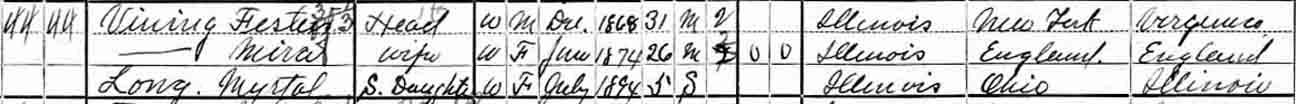 44 44 Vining Festen Head W M Dec. 1868 31 M 2 Illinois New York Virginia
—— Mira wife W F June 1874 26 M 2 0 0 Illinois England. England
Long. Myrtal S. Daughter W F July 1894 5 S Illinois Ohio Illinois